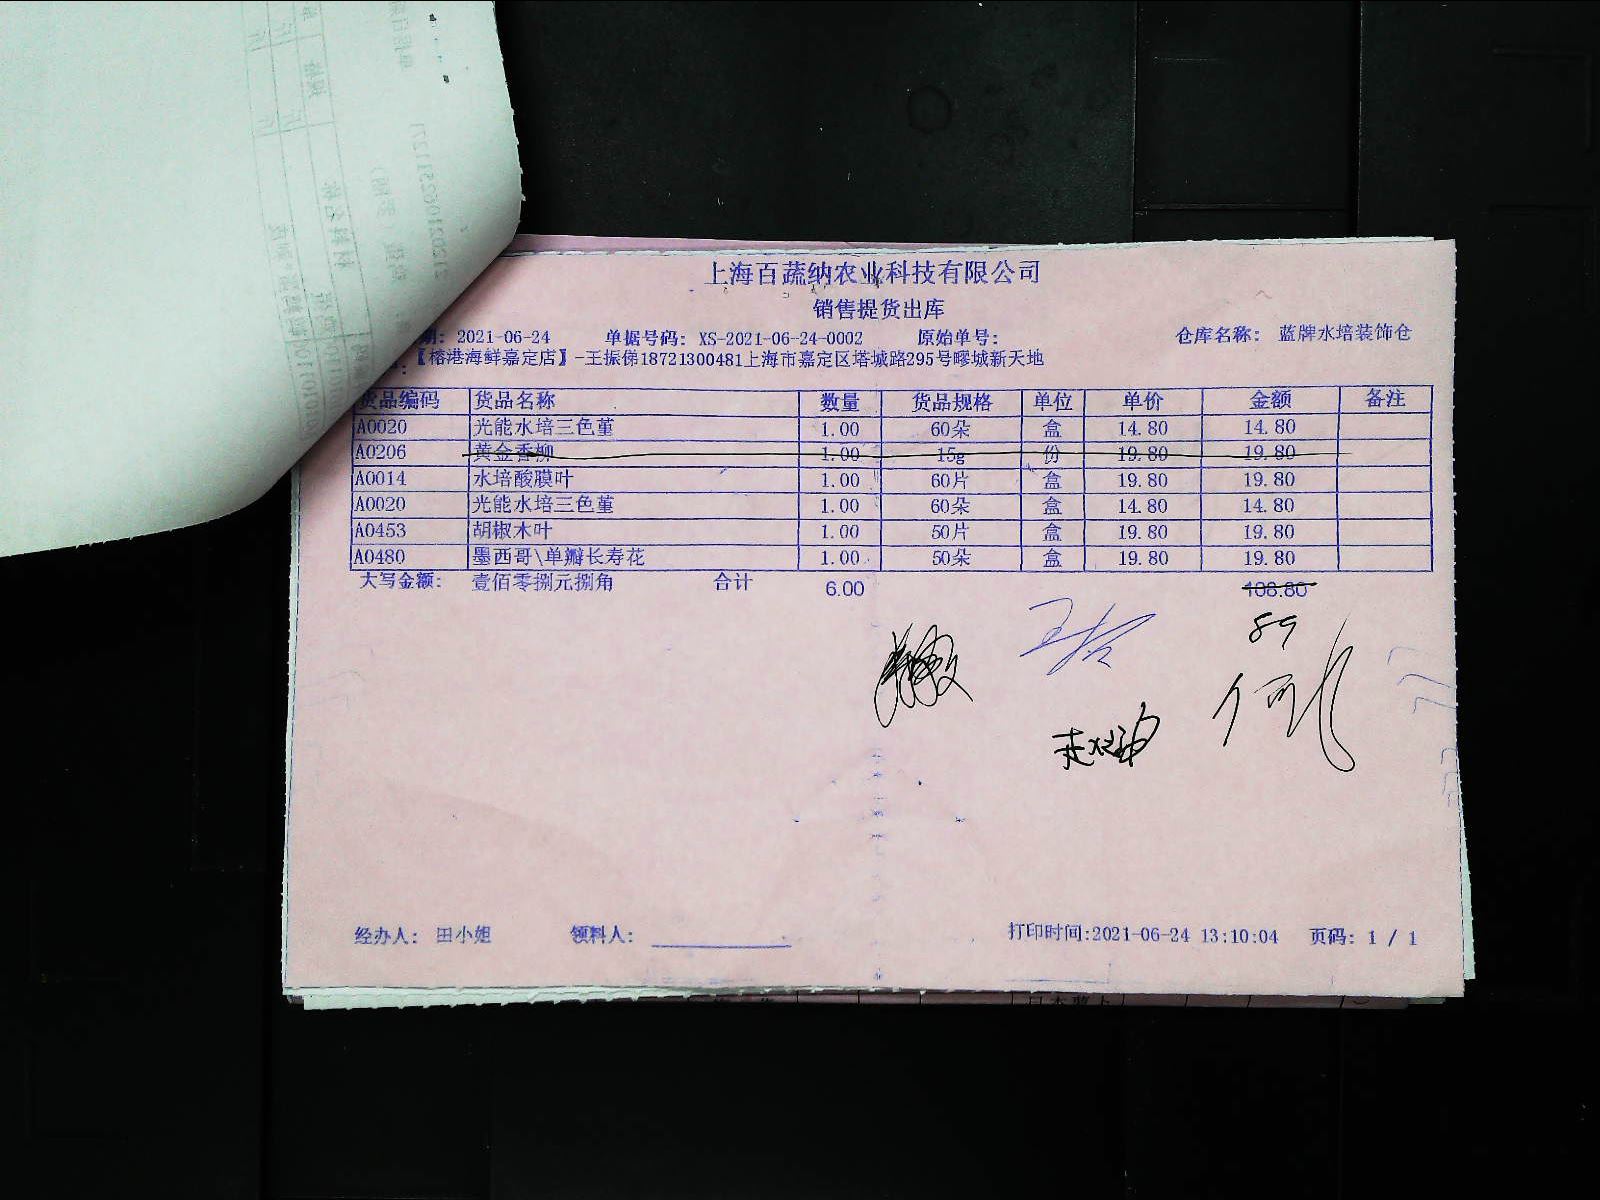 上海百蔬纳农业科技有限公司
销售提货出库
期: 2021-06-24 单据号码: XS-2021-06-24-0002 原始单号: 仓库名称: 蓝牌水培装饰仓
【榕港海鲜嘉定店】-王振俤18721300481上海市嘉定区塔城路295号疁城新天地
货品编码 货品名称 数量 货品规格 单位 单价 金额 备注
A0020 光能水培三色堇 1.00 60朵 盒 14.80 14.80
A0206 黄金香柳 1.00 15g 份 19.80 19.80
A0014 水培酸膜叶 1.00 60片 盒 19.80 19.80
A0020 光能水培三色堇 1.00 60朵 盒 14.80 14.80
A0453 胡椒木叶 1.00 50片 盒 19.80 19.80
A0480 墨西哥\单瓣长寿花 1.00 50朵 盒 19.80 19.80
大写金额: 壹佰零捌元捌角 合计 6.00 108.80
89
经办人: 田小姐 领料人: 打印时间:2021-06-24 13:10:04 页码: 1 / 1